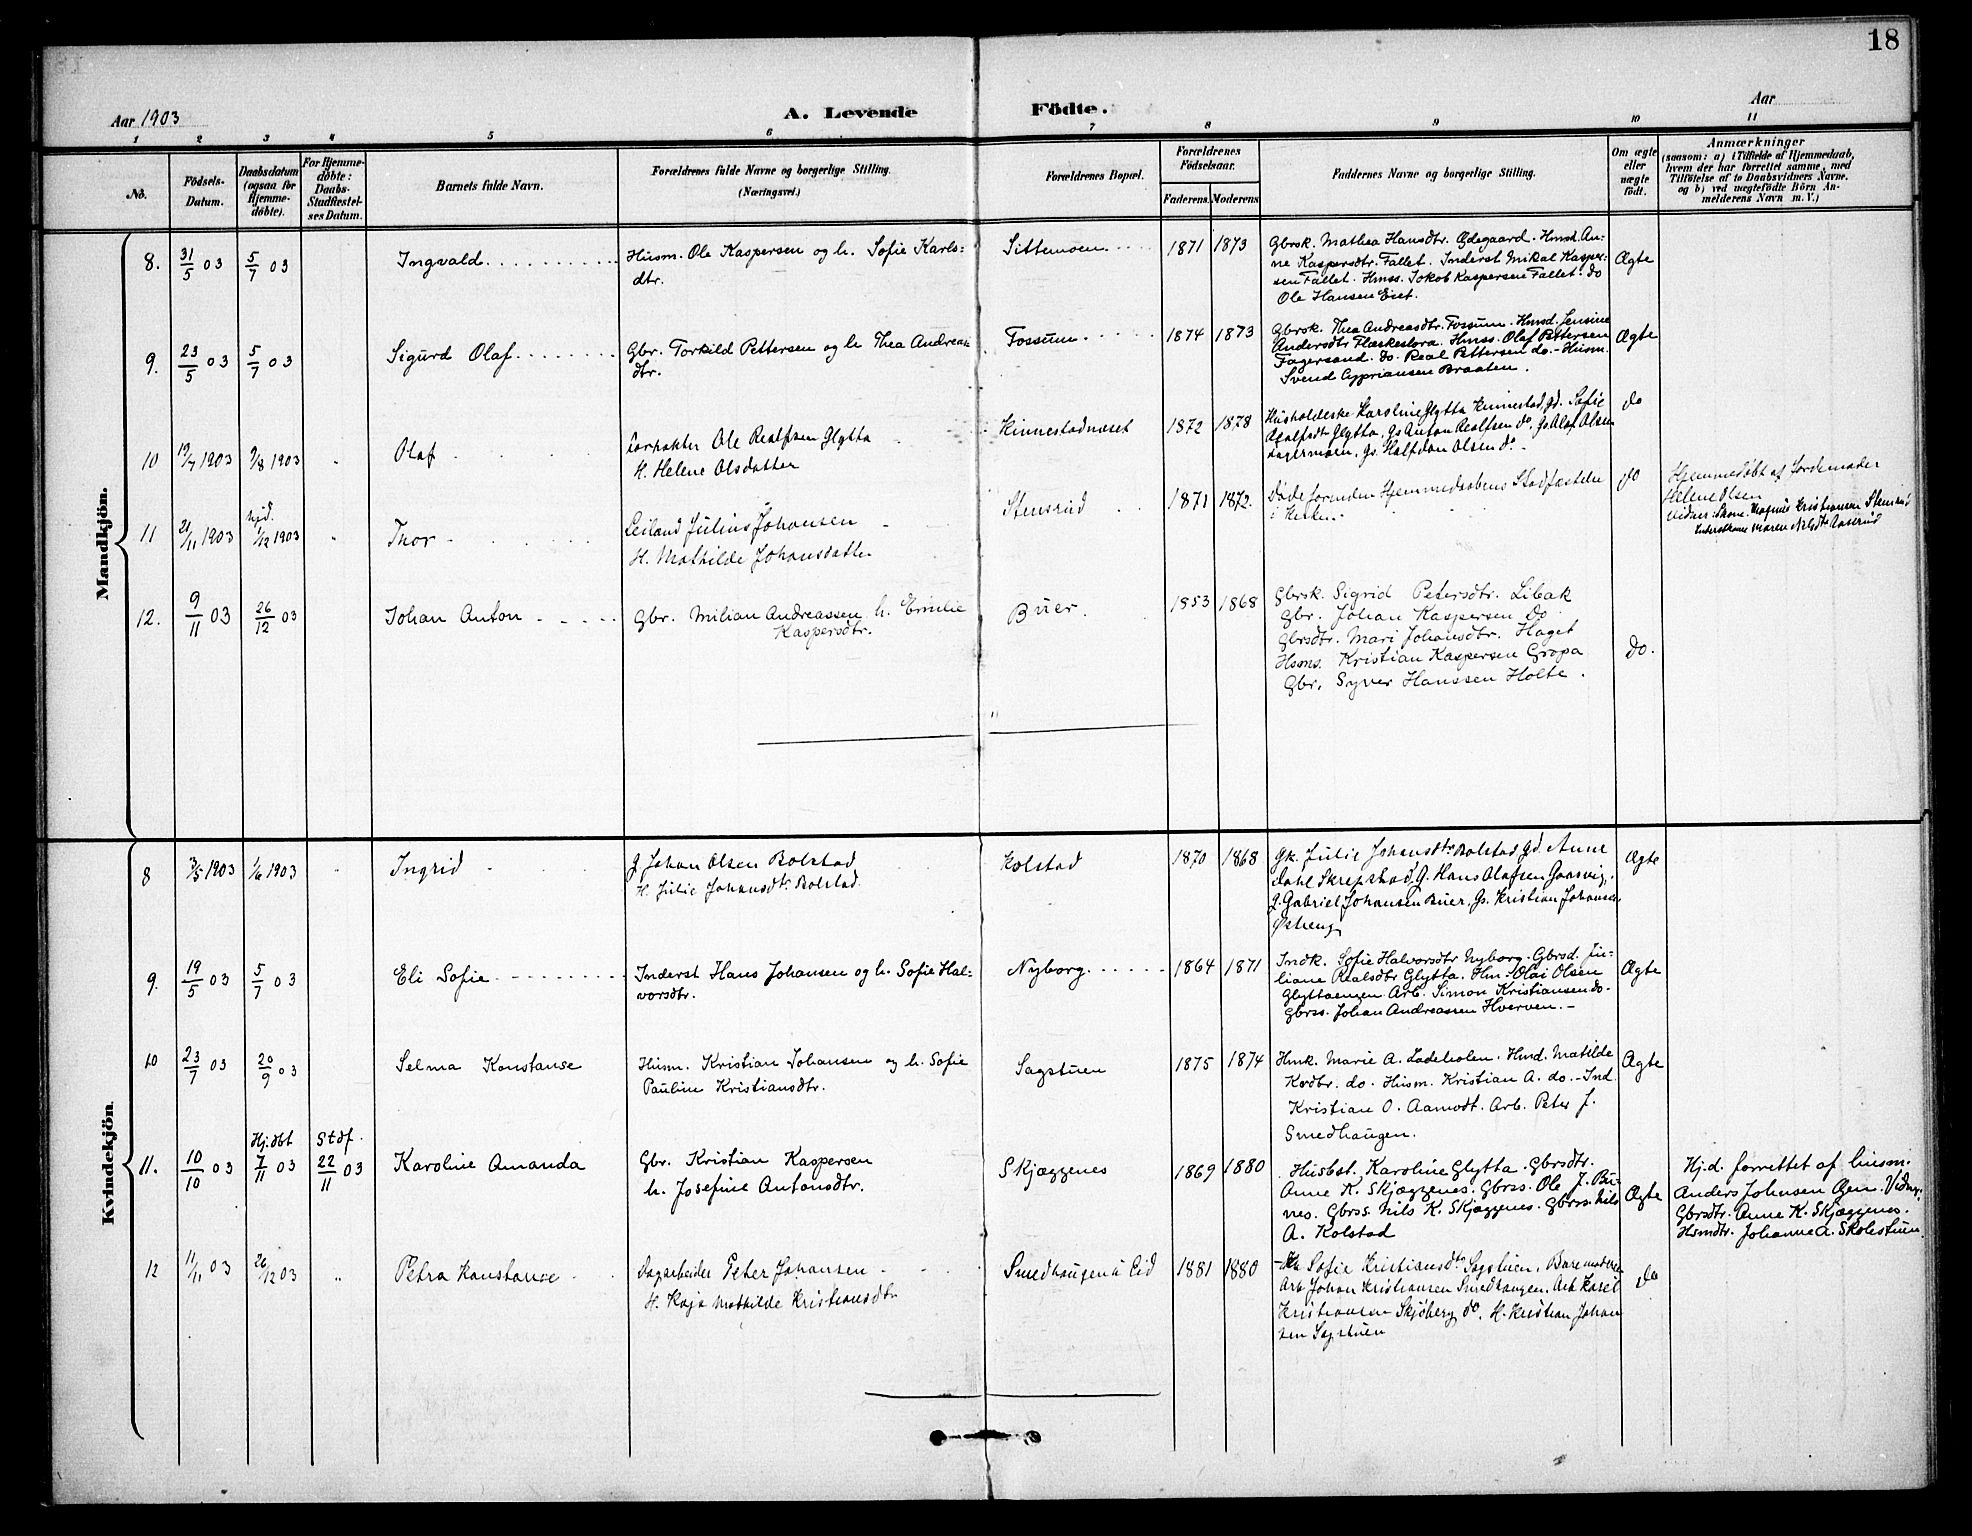 18
Aar 1903
A. Levende Födte.
Aar
1 2 3 4 5 6 7 8 9 10 11
No.
Födsels-
Datum.
Daabsdatum
(ogsaa for
Hjemme-
döbte).
For Hjemme-
döbte:
Daabs-
Stadfæstel-
ses Datum.
Barnets fulde Navn.
Forældrenes fulde Navne og borgerlige Stilling.
(Næringsvei.)
Forældrenes Bopæl.
Forældrenes
Födselsaar.
Faderens. Moderens
Faddernes Navne og borgerlige Stilling.
Om ægte
eller
uægte
födt.
Anmærkninger
(saasom: a) i Tilfælde af Hjemmedaab,
hvem der har forrettet samme, med
Tilföielse af to Daabsvidners Navne.
og b) ved uægtefödte Börn An-
melderens Navn m. V.)
Mandkjön.
8. 31/5 03 5/7 03 Ingvald
Husm. Ole Kaspersen og h. Sofie Karls=
dtr.
Sittemoen 1871 1873
Gbrsk. Mathea Hansdtr. Ødegaard. Hmsd. An-
ne Kaspersdtr. Fallet. Inderst Mikal Kasper-
sen Fallet. Hmss. Jokob Kaspersen Fallet. do
Ole Hansen Eiet.
Ægte
9. 23/5 03 5/7 03 Sigurd Olaf
Gbr. Torkild Pettersen og h Thea Andreas
dtr.
Fossum 1874 1873
Gbrsk. Thea Andreasdtr. Fossum. Hmsd. Jensine
Andersdtr Flæskestora. Hmss. Olaf Pettersen
Fagersand. do. Real Pettersen do. - Husm.
Svend Cyprianusen Braaten.
Ægte
10 19/7 1903 9/8 1903 " Olaf
Forpakter Ole Realfsen Glytta
H. Helene Olsdatter
Kinnestadnæset 1872 1878
Husholderske Karoline Glytta Kinnestad, gd. Sofie
Realfsdtr Glytta, Gs Anton Realfsen do, Gs Olaf Olsen
Lagermoen, Gs. Halfdan Olsen do.
do
11 21/11 1903 hjd. 1/12 1903 " Thor
Leiland Julius Johansen
H. Mathilde Johansdatter
Stensrud 1871 1872.
Døde forinden Hjemmedaabens Stadfæstelse
i Kirken.
do
Hjemmedøbt af Jordemoder
Helene Olsen
Vidner: Skom. Magnus Kristiansen Stensrud
12. 9/11 03 26/12 03 Johan Anton
Gbr. Milian Andreassen h. Emilie
Kaspersdtr.
Buer 1853 1868
Gbrsk. Sigrid Petersdtr. Libak
Gbr. Johan Kaspersen do
Gbrsdtr. Mari Johansdtr. Haget
Hsms. Kristian Kaspersen Gropa
Gbr. Syver Hanssen Holte.
do.
Kvindekjön.
8 3/5 1903 1/6 1903 " Ingrid
G Johan Olsen Bolstad
H. Julie Johansdtr Bolstad.
Kolstad 1870 1868
Gk. Julie Johansdtr Bolstad Gd. Anne
Dahl Skrepstad, G. Hans Olafsen Gaasvig,
G. Gabriel Johansen Buer, Gs. Kristian Johansen
Østreng
Ægte
9. 19/5 03 5/7 03 Eli Sofie
Inderst Hans Johansen og h. Sofie Hal=
vorsdtr.
Nyborg 1864 1871
Indk. Sofie Halvorsdtr Nyborg. Gbrsd. Ju-
liane Realsdtr Glytta. Hm. Olai Olsen
Glyttaengen. Arb. Simon Kristiansen do.
Gbrss. Johan Andreassen Hverven. -
Ægte
10 23/7 03 20/9 03 Selma Konstanse
Husm. Kristian Johansen og h. Sofie
Pauline Kristiansdtr.
Sagstuen 1875 1874
Hmk. Marie A. Ladeholen. Hmd. Matilde
Kordbr. do. Husm. Kristian A. do. - Ind.
Kristian O. Aamodt. Arb. Peter J.
Smedhaugen.
Ægte
11. 10/10 03 Hj.døbt 7/11 03 Stdf. 22/11 03 Karoline Amanda
Gbr. Kristian Kaspersen
h. Josefine Antonsdtr.
Skjæggenes 1869 1880
Husbst. Karoline Glytta. Gbrsdtr.
Anne K. Skjæggenes. Gbrss. Ole J. Bu-
nes. Gbrss. Nils K. Skjæggenes. Gbrss. Nils
A. Kolstad
Ægte
Hj.d. forrettet af husm.
Anders Johnsen Øen. Vidner:
Gbrsdtr. Anne K. Skjæggenes.
Hsmdtr. Johanne A. Skolestuen
12 11/11 03 26/12 03 " Petra Konstance
Dagarbeider Peter Johansen
H. Kaja Mathilde Kristiansdtr
Smedhaugen u Eid 1881 1880
Sofie Kristiansdtr Sagstuen, Barnemoderen
Arb Johan Kristiansen Smedhaugen, Arb Karel
Kristiansen Skjøberg do. H. Kristian Johan
sen Sagstuen
do